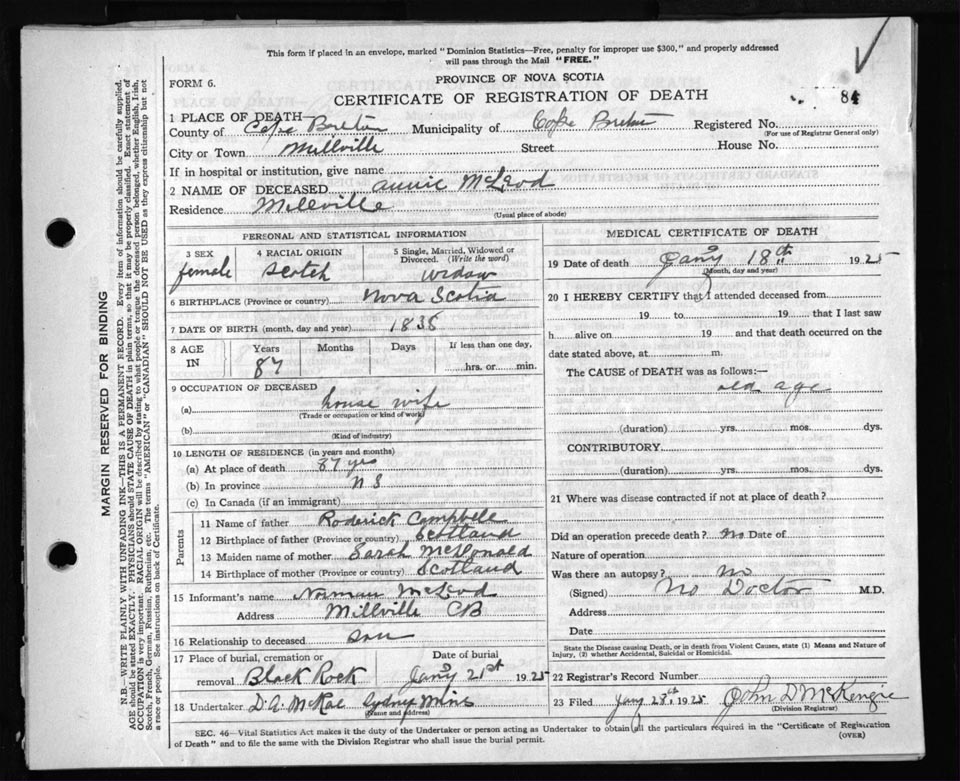 This form if placed in an envelope, marked "Dominion Statistics—Free, penalty for improper use $300," and properly addressed
will pass through the Mail "FREE."
FORM 6.
PROVINCE OF NOVA SCOTIA
CERTIFICATE OF REGISTRATION OF DEATH
84
1 PLACE OF DEATH—
County of Cape Breton Municipality of Cape Breton Registered No.
(For use of Registrar General only)
City or Town Millville Street House No.
If in hospital or institution, give name
2 NAME OF DECEASED Annie McLeod
Residence Millville
(Usual place of abode)
PERSONAL AND STATISTICAL INFORMATION
3 SEX 4 RACIAL ORIGIN 5 Single, Married, Widowed or Divorced. (Write the word)
female Scotch widow
6 BIRTHPLACE (Province or country) Nova Scotia
7 DATE OF BIRTH (month, day and year) 1838
8 AGE IN Years Months Days If less than one day,
87 hrs. or min.
9 OCCUPATION OF DECEASED
(a) house wife
(Trade or occupation or kind of work)
(b)
(Kind of industry)
10 LENGTH OF RESIDENCE (in years and months)
(a) At place of death 87 yrs
(b) In province N S
(c) In Canada (if an immigrant)
Parents
11 Name of father Roderick Campbell
12 Birthplace of father (Province or country) Scotland
13 Maiden name of mother Sarah McDonald
14 Birthplace of mother (Province or country) Scotland
15 Informant's name Norman McLeod
Address Millville CB
16 Relationship to deceased son
17 Place of burial, cremation or Date of burial
removal Black Rock Jany 21st 1925
18 Undertaker D. A. McRae Sydney Mins
(Name and address)
MEDICAL CERTIFICATE OF DEATH
19 Date of death Jany 18th 1925
(Month, day and year)
20 I HEREBY CERTIFY that I attended deceased from
19 to 19 that I last saw
h alive on 19 and that death occurred on the
date stated above, at m.
The CAUSE of DEATH was as follows:—
old age
(duration) yrs. mos. dys.
CONTRIBUTORY
(duration) yrs. mos. dys.
21 Where was disease contracted if not at place of death?
Did an operation precede death? no Date of
Nature of operation
Was there an autopsy? no
(Signed) No Doctor M.D.
Address
Date
State the Disease causing Death, or in death from Violent Causes, state (1) Means and Nature of
Injury, (2) whether Accidental, Suicidal or Homicidal.
22 Registrar's Record Number
23 Filed Jany 28th 1925 John D McKenzie
(Division Registrar)
SEC. 46—Vital Statistics Act makes it the duty of the Undertaker or person acting as Undertaker to obtain all the particulars required in the "Certificate of Registration
of Death" and to file the same with the Division Registrar who shall issue the burial permit.
(OVER)
MARGIN RESERVED FOR BINDING
N.B.—WRITE PLAINLY WITH UNFADING INK—THIS IS A PERMANENT RECORD. Every item of information should be carefully supplied.
AGE should be stated EXACTLY. PHYSICIANS should STATE CAUSE OF DEATH in plain terms, so that it may be properly classified. Exact statement of
OCCUPATION is very important. RACIAL ORIGIN will be described by stating to what people or tongue the deceased person belonged, whether English, Irish,
Scotch, French, German, Russian, Ruthenian, etc. The terms "AMERICAN" or "CANADIAN" SHOULD NOT BE USED as they express citizenship but not
a race or people. See instructions on back of Certificate.